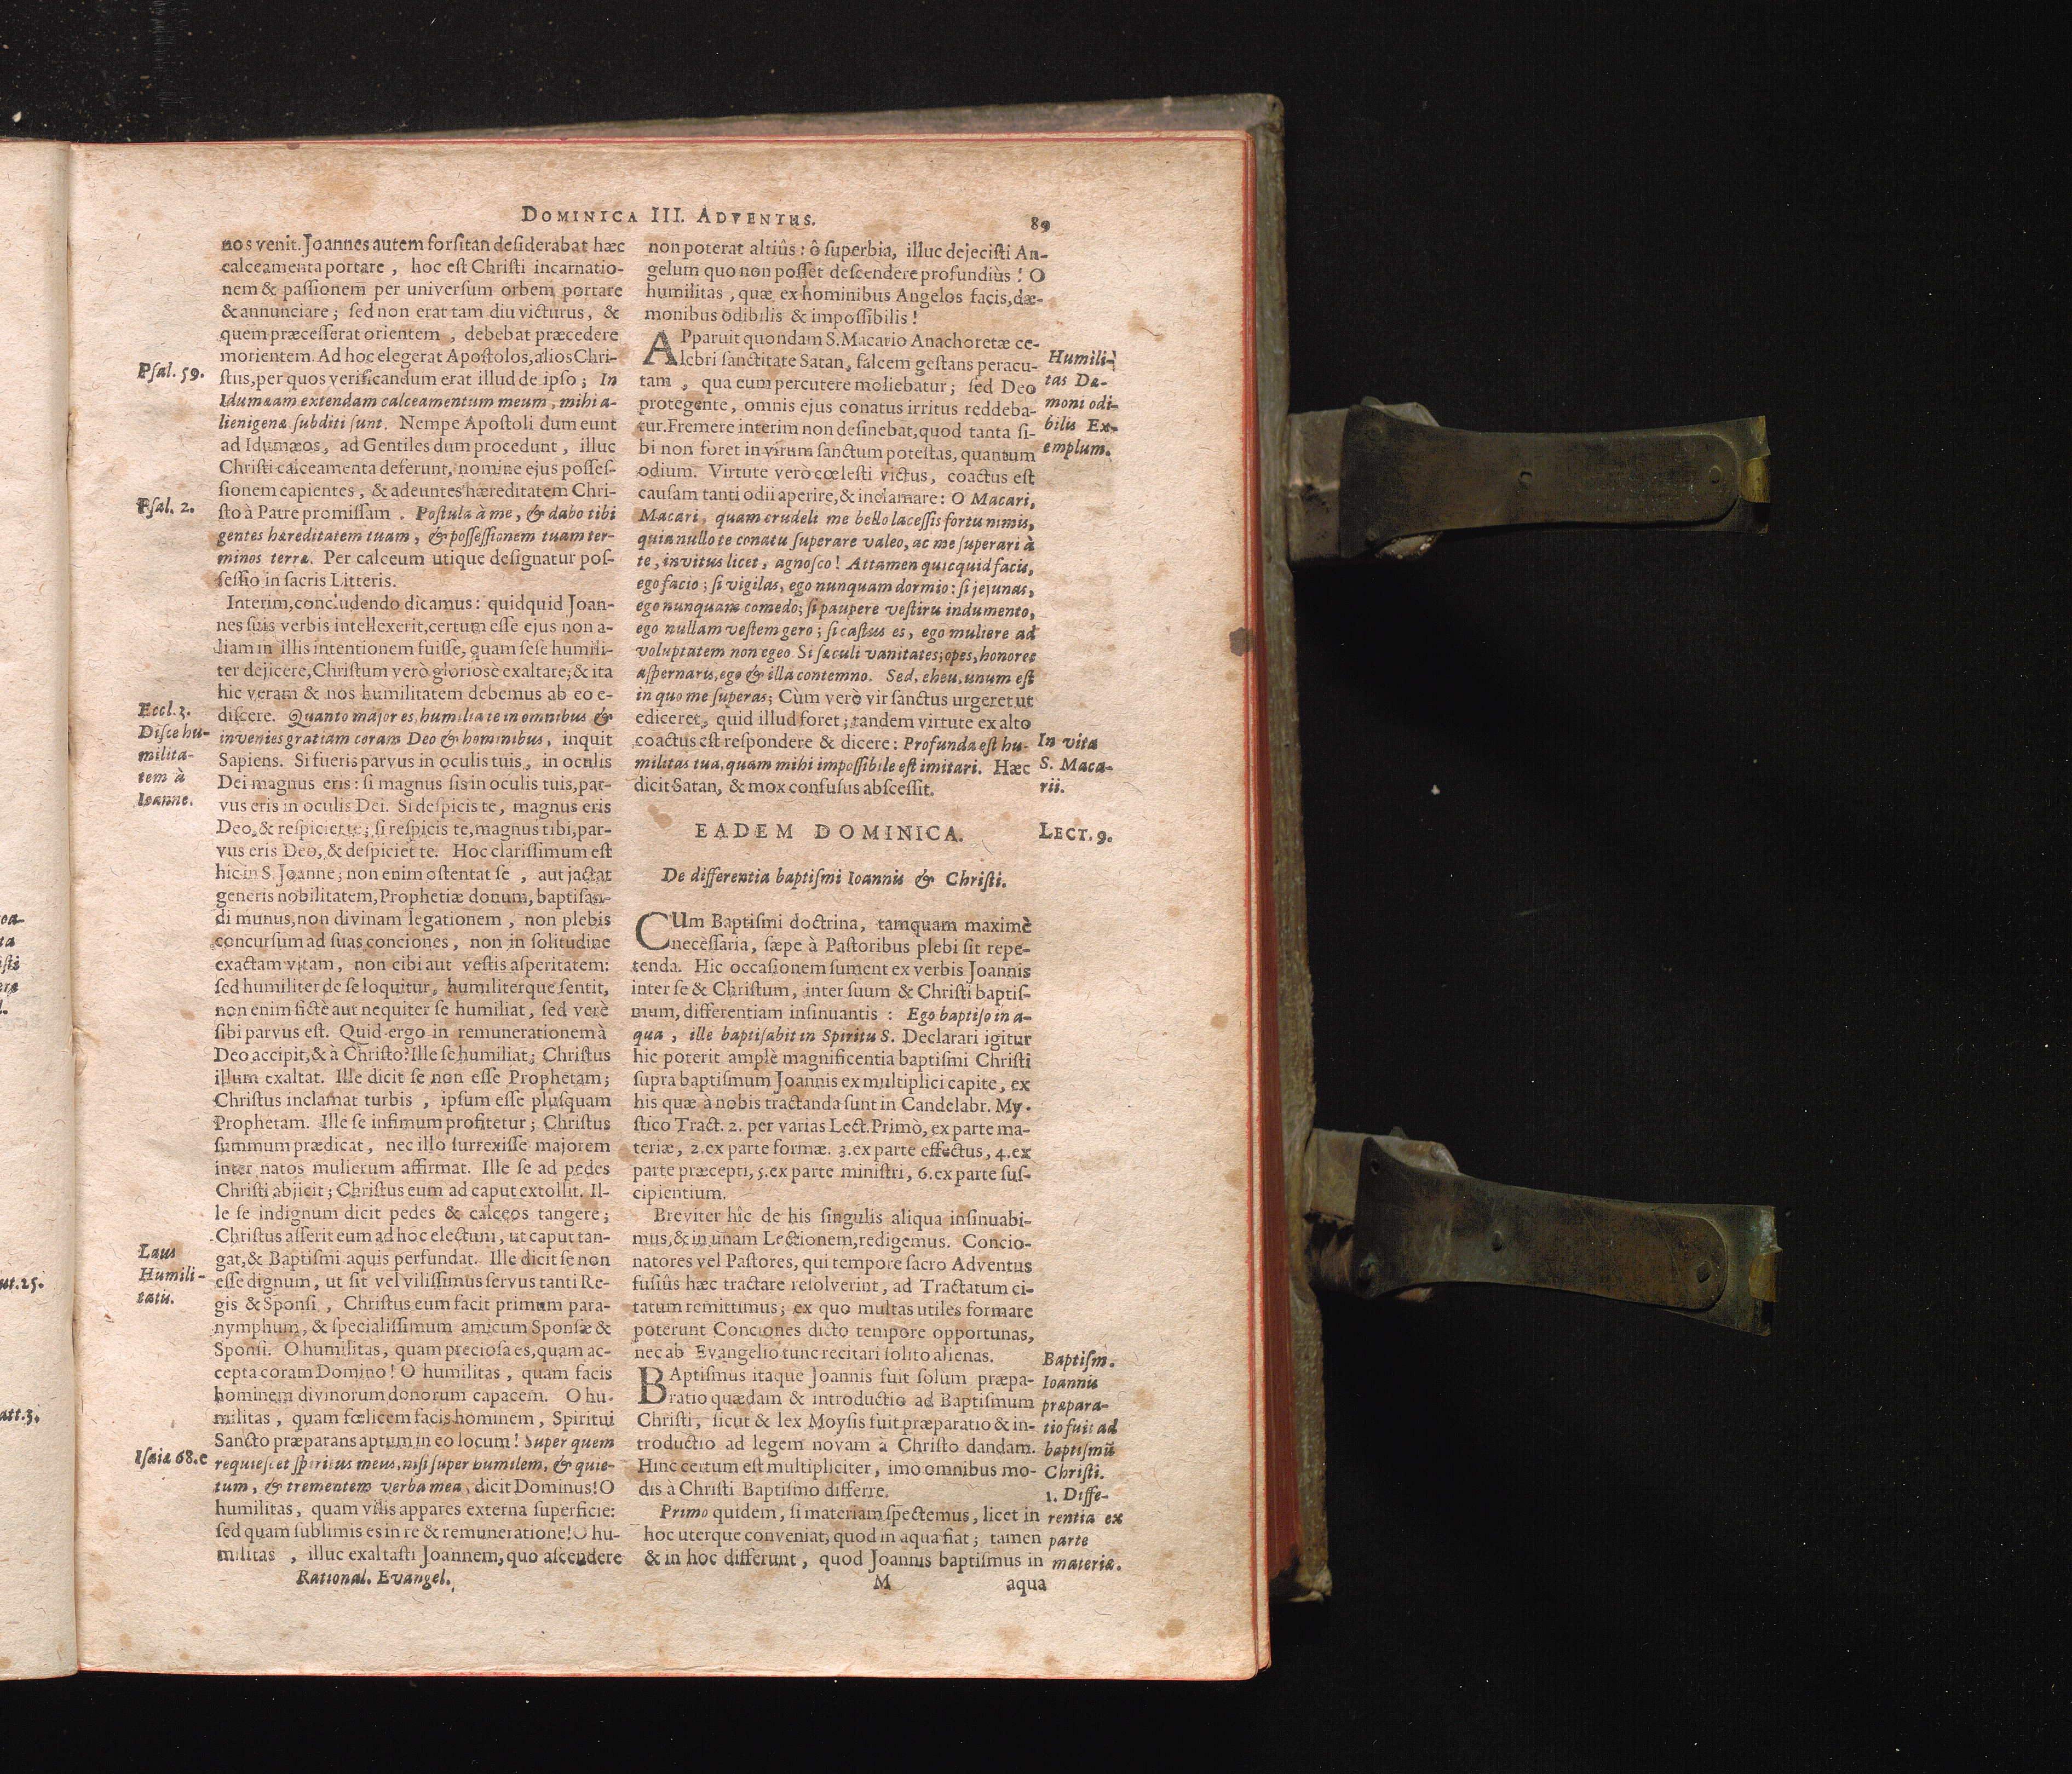 DOMINICA III. ADVENTUS.
89
nos venit. Joannes autem forsitan desiderabat hæc
calceamenta portare, hoc est Christi incarnatio-
nem & passionem per universum orbem portare
& annunciare; sed non erat tam diu victurus, &
quem præcesserat orientem, debebat præcedere
morientem. Ad hoc elegerat Apostolos, alios Chri-
stus, per quos verificandum erat illud de ipso; In
Idumæam extendam calceamentum meum, mihi a-
lienigenæ subditi sunt. Nempe Apostoli dum eunt
ad Idumæos, ad Gentiles dum procedunt, illuc
Christi calceamenta deferunt, nomine ejus posses-
sionem capientes, & adeuntes hæreditatem Chri-
sto à Patre promissam. Postula à me, & dabo tibi
gentes hæreditatem tuam, & possessionem tuam ter-
minos terræ. Per calceum utique designatur pos-
sessio in sacris Litteris.
Interim, concludendo dicamus: quidquid Joan-
nes suis verbis intellexerit, certum esse ejus non a-
liam in illis intentionem fuisse, quam sese humili-
ter dejicere, Christum verò gloriosè exaltare; & ita
hic veram & nos humilitatem debemus ab eo e-
discere. Quanto major es, humilia te in omnibus &
invenies gratiam coram Deo & hominibus, inquit
Sapiens. Si fueris parvus in oculis tuis, in oculis
Dei magnus eris: si magnus sis in oculis tuis, par-
vus eris in oculis Dei. Si despicis te, magnus eris
Deo, & respiciet te; si respicis te, magnus tibi, par-
vus eris Deo, & despiciet te. Hoc clarissimum est
hic in S. Joanne; non enim ostentat se, aut jactat
generis nobilitatem, Prophetiæ donum, baptisan-
di munus, non divinam legationem, non plebis
concursum ad suas conciones, non in solitudine
exactam vitam, non cibi aut vestis asperitatem:
sed humiliter de se loquitur, humiliterque sentit,
non enim fictè aut nequiter se humiliat, sed verè
sibi parvus est. Quid ergo in remunerationem à
Deo accipit, & à Christo? Ille se humiliat; Christus
illum exaltat. Ille dicit se non esse Prophetam;
Christus inclamat turbis, ipsum esse plusquam
Prophetam. Ille se infimum profitetur; Christus
summum prædicat, nec illo surrexisse majorem
inter natos mulierum affirmat. Ille se ad pedes
Christi abjicit; Christus eum ad caput extollit. Il-
le se indignum dicit pedes & calceos tangere;
Christus asserit eum ad hoc electum, ut caput tan-
gat, & Baptismi aquis perfundat. Ille dicit se non
esse dignum, ut sit vel vilissimus servus tanti Re-
gis & Sponsi, Christus eum facit primum para-
nymphum, & specialissimum amicum Sponsæ &
Sponsi. O humilitas, quam preciosa es, quam ac-
cepta coram Domino! O humilitas, quam facis
hominem divinorum donorum capacem. O hu-
militas, quam fœlicem facis hominem, Spiritui
Sancto præparans aptum in eo locum! Super quem
requiescet spiritus meus, nisi super humilem, & quie-
tum, & trementem verba mea, dicit Dominus! O
humilitas, quam vilis appares externa superficie:
sed quam sublimis es in re & remuneratione! O hu-
militas, illuc exaltasti Joannem, quo ascendere
Rational. Evangel.
Psal. 59.
Psal. 2.
Eccl. 3.
Disce hu-
milita-
tem à
Ioanne.
Laus
Humili-
tatis.
Isaiæ 68.e
non poterat altiùs: ô superbia, illuc dejecisti An-
gelum quo non posset descendere profundiùs! O
humilitas, quæ ex hominibus Angelos facis, dæ-
monibus odibilis & impossibilis!
APparuit quondam S. Macario Anachoretæ ce-
lebri sanctitate Satan, falcem gestans peracu-
tam, qua eum percutere moliebatur; sed Deo
protegente, omnis ejus conatus irritus reddeba-
tur. Fremere interim non desinebat, quod tanta si-
bi non foret in virum sanctum potestas, quantum
odium. Virtute verò cœlesti victus, coactus est
causam tanti odii aperire, & inclamare: O Macari,
Macari, quam crudeli me bello lacessis fortu nimis,
quia nullo te conatu superare valeo, ac me superari à
te, invitus licet, agnosco! Attamen quicquid facis,
ego facio; si vigilas, ego nunquam dormio: si jejunas,
ego nunquam comedo; si paupere vestiris indumento,
ego nullam vestem gero; si castus es, ego muliere ad
voluptatem non egeo. Si sæculi vanitates, opes, honores
aspernaris, ego & illa contemno. Sed, eheu, unum est
in quo me superas; Cùm verò vir sanctus urgeret ut
ediceret, quid illud foret; tandem virtute ex alto
coactus est respondere & dicere: Profunda est hu-
militas tua, quam mihi impossibile est imitari. Hæc
dicit Satan, & mox confusus abscessit.
EADEM DOMINICA.
LECT. 9.
De differentia baptismi Ioannis & Christi.
CUm Baptismi doctrina, tamquam maximè
necessaria, sæpe à Pastoribus plebi sit repe-
tenda. Hic occasionem sument ex verbis Joannis
inter se & Christum, inter suum & Christi baptis-
mum, differentiam insinuantis: Ego baptiso in a-
qua, ille baptisabit in Spiritu S. Declarari igitur
hic poterit amplè magnificentia baptismi Christi
supra baptismum Joannis ex multiplici capite, ex
his quæ à nobis tractanda sunt in Candelabr. My-
stico Tract. 2. per varias Lect. Primò, ex parte ma-
teriæ, 2. ex parte formæ. 3. ex parte effectus, 4. ex
parte præcepti, 5. ex parte ministri, 6. ex parte sus-
cipientium.
Breviter hîc de his singulis aliqua insinuabi-
mus, & in unam Lectionem, redigemus. Concio-
natores vel Pastores, qui tempore sacro Adventus
fusiùs hæc tractare resolverint, ad Tractatum ci-
tatum remittimus; ex quo multas utiles formare
poterunt Conciones dicto tempore opportunas,
nec ab Evangelio tunc recitari solito alienas.
BAptismus itaque Joannis fuit solum præpa-
ratio quædam & introductio ad Baptismum
Christi, sicut & lex Moysis fuit præparatio & in-
troductio ad legem novam à Christo dandam.
Hinc certum est multipliciter, imo omnibus mo-
dis à Christi Baptismo differre.
Primo quidem, si materiam spectemus, licet in
hoc uterque conveniat, quod in aqua fiat; tamen
& in hoc differunt, quod Joannis baptismus in
M
aqua
Humili-
tas Dæ-
moni odi-
bilis Ex-
emplum.
In vita
S. Maca-
rii.
Baptism.
Ioannis
præpara-
tio fuit ad
baptismũ
Christi.
1. Diffe-
rentia ex
parte
materiæ.